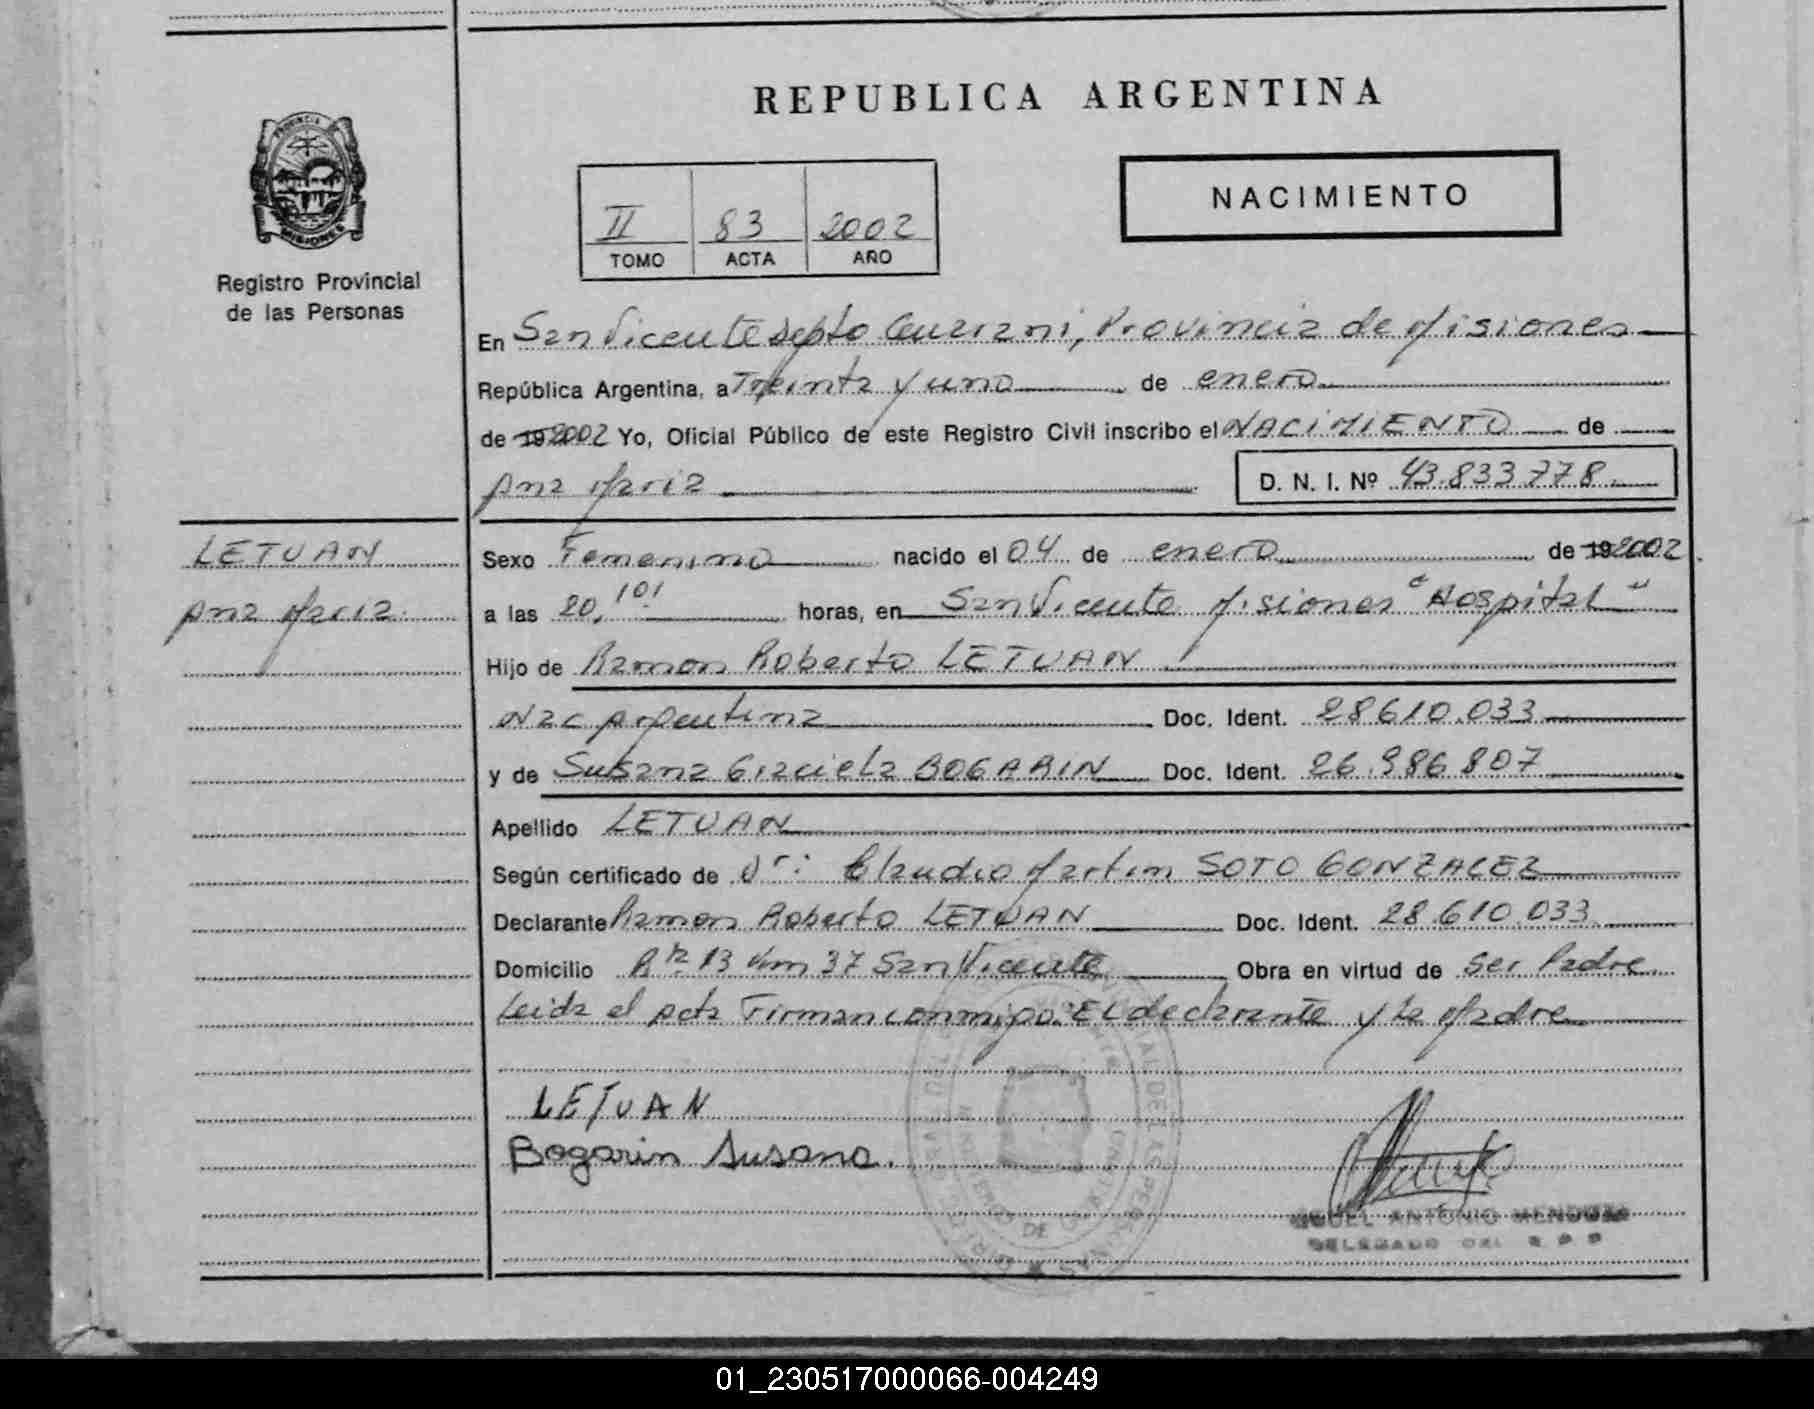 REPUBLICA ARGENTINA
PROVINCIA DE
MISIONES
Registro Provincial
de las Personas
II 83 2002
TOMO ACTA AÑO
NACIMIENTO
En San Vicente Depto Guarani, Provincia de Misiones
República Argentina, a Treinta y uno de enero
de 19 2002 Yo, Oficial Público de este Registro Civil inscribo el NACIMIENTO de
Ana Maria
D. N. I. Nº 43.833.778
LETUAN
Ana Maria
Sexo Femenino nacido el 04 de enero de 19 2002
a las 20,10' horas, en San Vicente Misiones "Hospital"
Hijo de Ramon Roberto LETUAN
Nac Argentina Doc. Ident. 28.610.033
y de Susana Graciela BOGARIN Doc. Ident. 26.986.807
Apellido LETUAN
Según certificado de Dr: Claudio Martin SOTO GONZALEZ
Declarante Ramon Roberto LETUAN Doc. Ident. 28.610.033
Domicilio Rta 13 Km 37 San Vicente Obra en virtud de ser Padre
Leida el Acta Firman conmigo: El declarante y la Madre
LETUAN
Bogarin Susana.
MIGUEL ANTONIO MENDOZA
DELEGADO DEL R P P
01_230517000066-004249